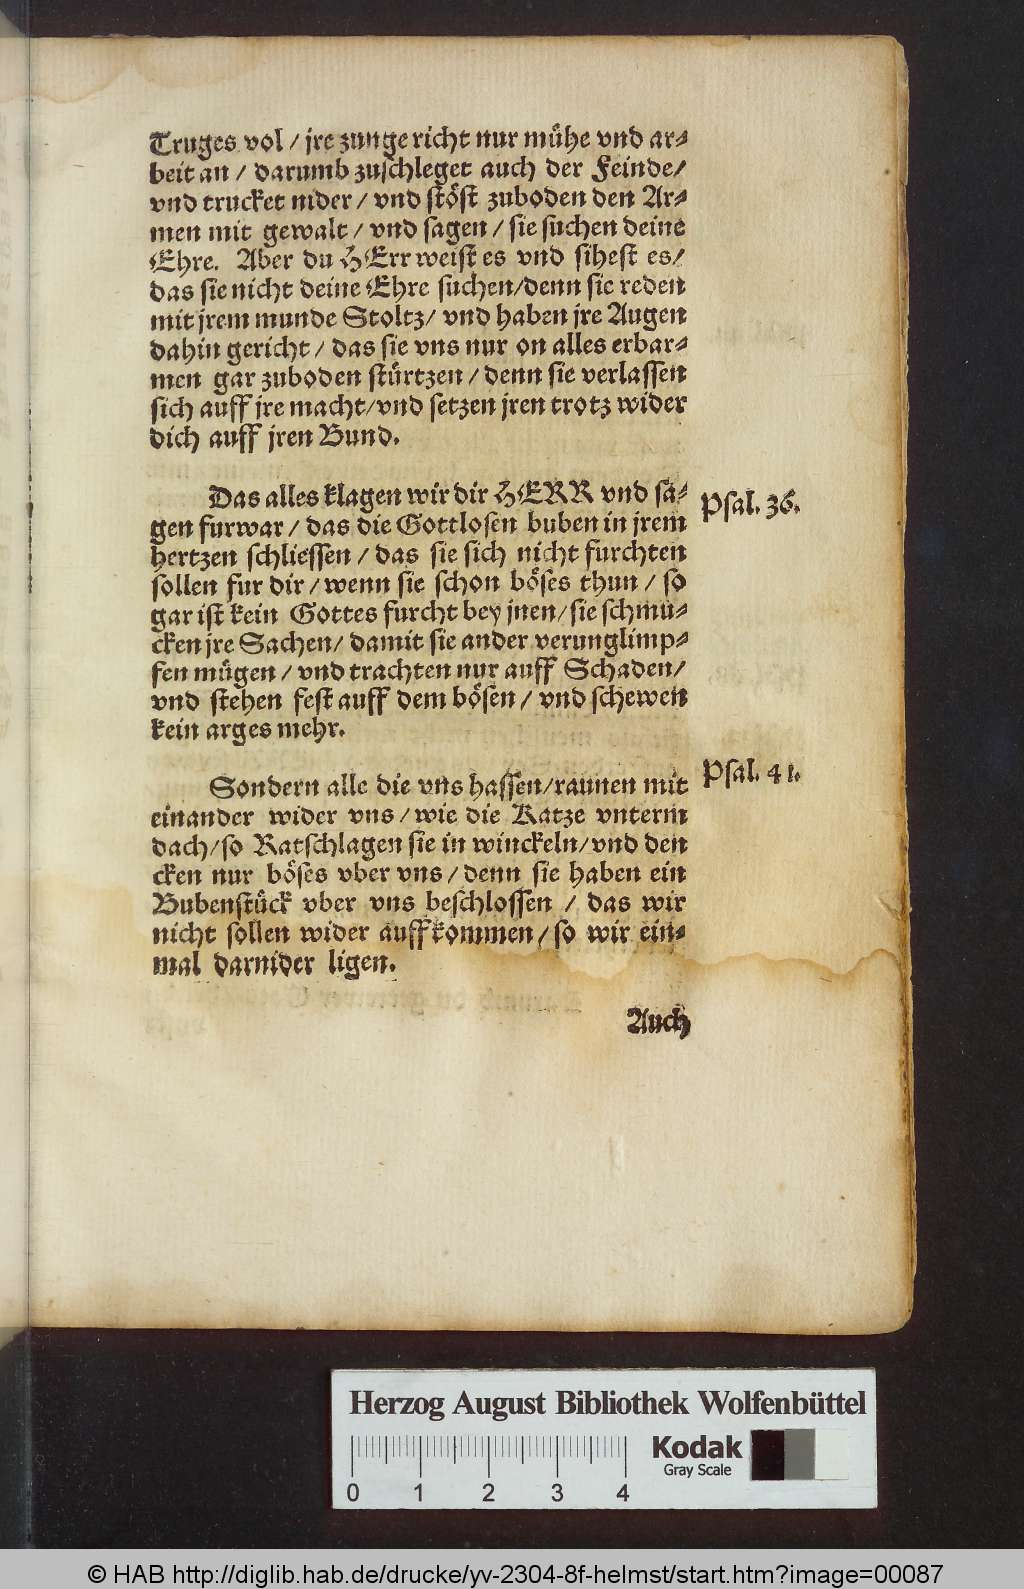 Truges vol / jre zunge richt nur mühe vnd ar⸗
beit an / darumb zuschleget auch der Feinde/
vnd trucket nider / vnd stöst zuboden den Ar⸗
men mit gewalt / vnd sagen / sie suchen deine
Ehre. Aber du HErr weist es vnd sihest es/
das sie nicht deine Ehre suchen/denn sie reden
mit jrem munde Stoltz/ vnd haben jre Augen
dahin gericht / das sie vns nur on alles erbar⸗
men gar zuboden stürtzen / denn sie verlassen
sich auff jre macht/vnd setzen jren trotz wider
dich auff jren Bund.
Das alles klagen wir dir HERR vnd sa⸗
gen furwar / das die Gottlosen buben in jrem
hertzen schliessen / das sie sich nicht furchten
sollen fur dir / wenn sie schon böses thun / so
gar ist kein Gottes furcht bey jnen/ sie schmu⸗
cken jre Sachen/ damit sie ander verunglimp⸗
fen mügen / vnd trachten nur auff Schaden/
vnd stehen fest auff dem bösen / vnd schewen
kein arges mehr.
Psal. 36.
Sondern alle die vns hassen/raunen mit
einander wider vns / wie die Katze vnterm
dach/so Ratschlagen sie in winckeln/vnd den
cken nur böses vber vns / denn sie haben ein
Bubenstück vber vns beschlossen / das wir
nicht sollen wider auffkommen / so wir ein⸗
mal darnider ligen.
Psal. 41.
Auch
Herzog August Bibliothek Wolfenbüttel
Kodak
Gray Scale
0 1 2 3 4
© HAB http://diglib.hab.de/drucke/yv-2304-8f-helmst/start.htm?image=00087